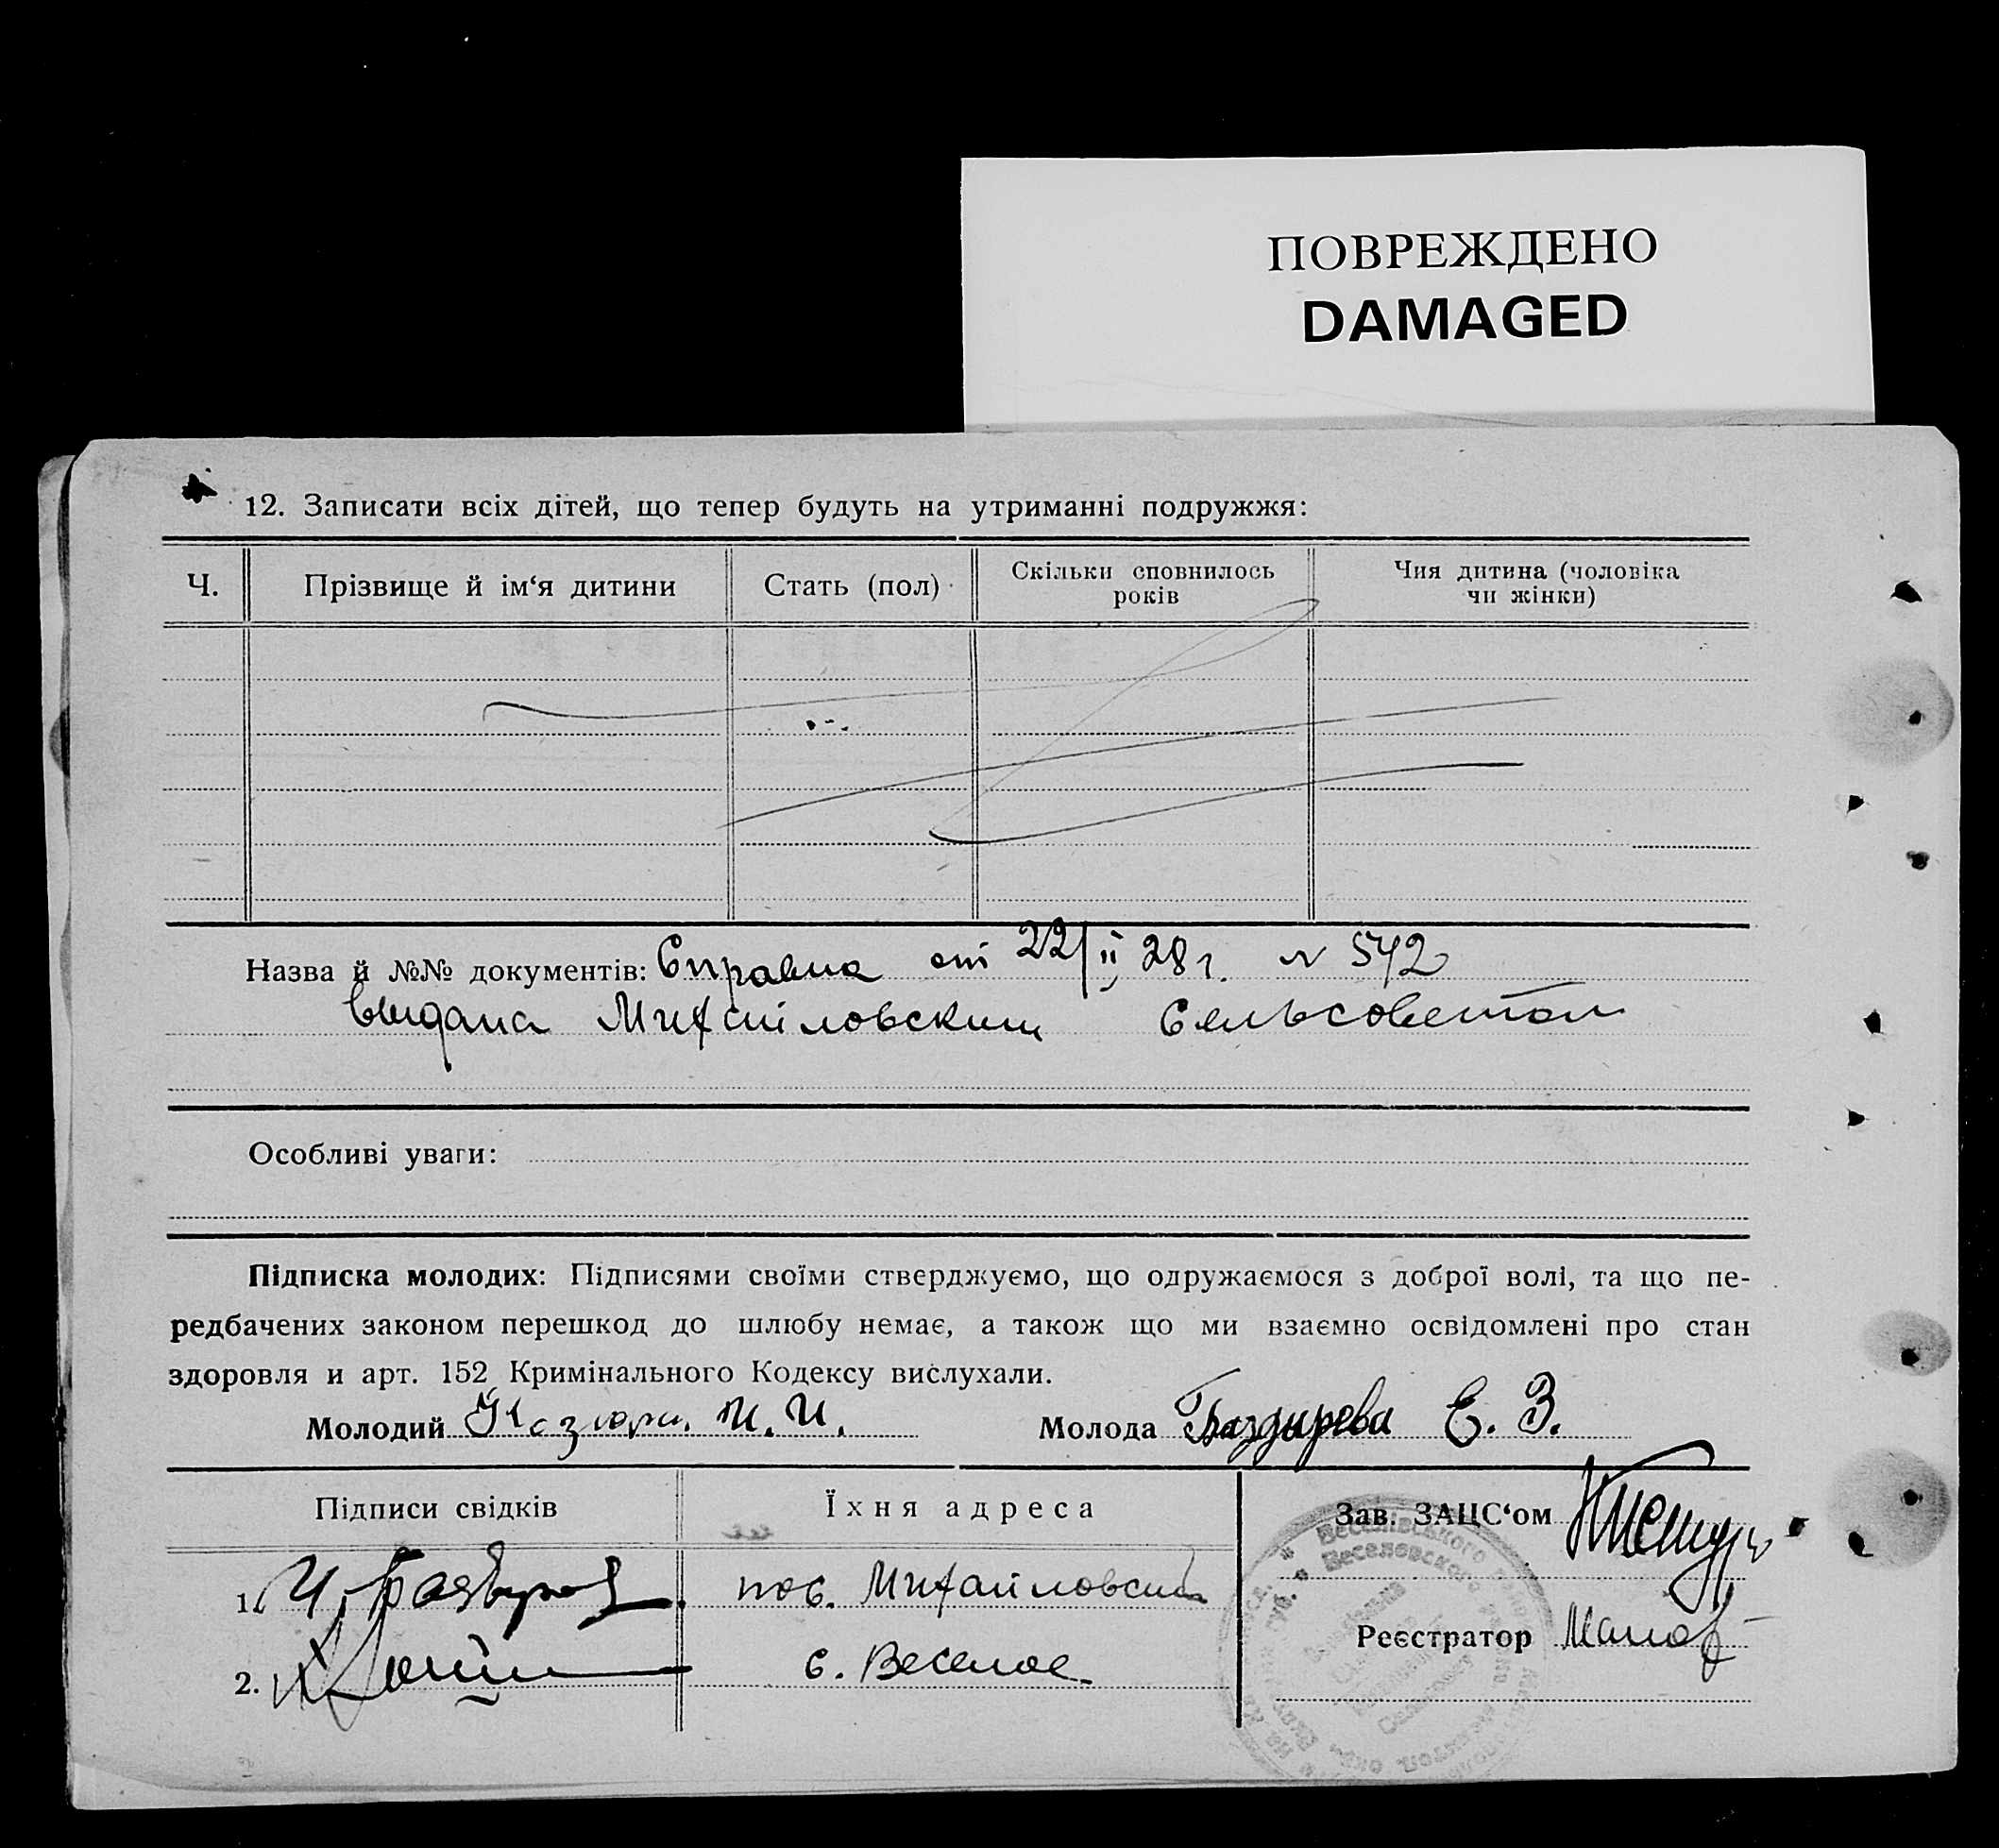 ПОВРЕЖДЕНО
DAMAGED
12. Записати всіх дітей, що тепер будуть на утриманні подружжя:
Ч. Прізвище й ім‘я дитини Стать (пол) Скільки сповнилось років Чия дитина (чоловіка чи жінки)
Назва й №№ документів: Справка от 22/II 28 г. N 542
выдана Михайловским Сельсоветом
Особливі уваги:
Підписка молодих: Підписями своїми стверджуємо, що одружаємося з доброї волі, та що пе-
редбачених законом перешкод до шлюбу немає, а також що ми взаємно освідомлені про стан
здоровля и арт. 152 Кримінального Кодексу вислухали.
Молодий И. И. Молода Баздырева Е. З.
Підписи свідків Їхня адреса Зав. ЗАЦС‘ом
1. пос. Михайловский
Реєстратор
2. с. Веселое
Веселівського
Веселовского